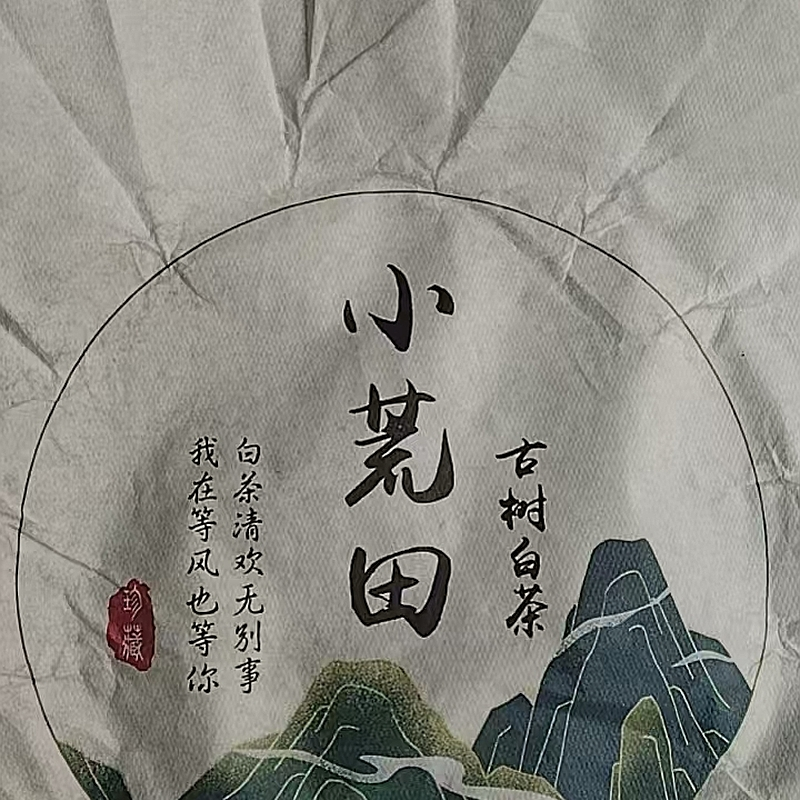 古树白茶
小荒田
白茶清欢无别事
我在等风也等你
珍藏